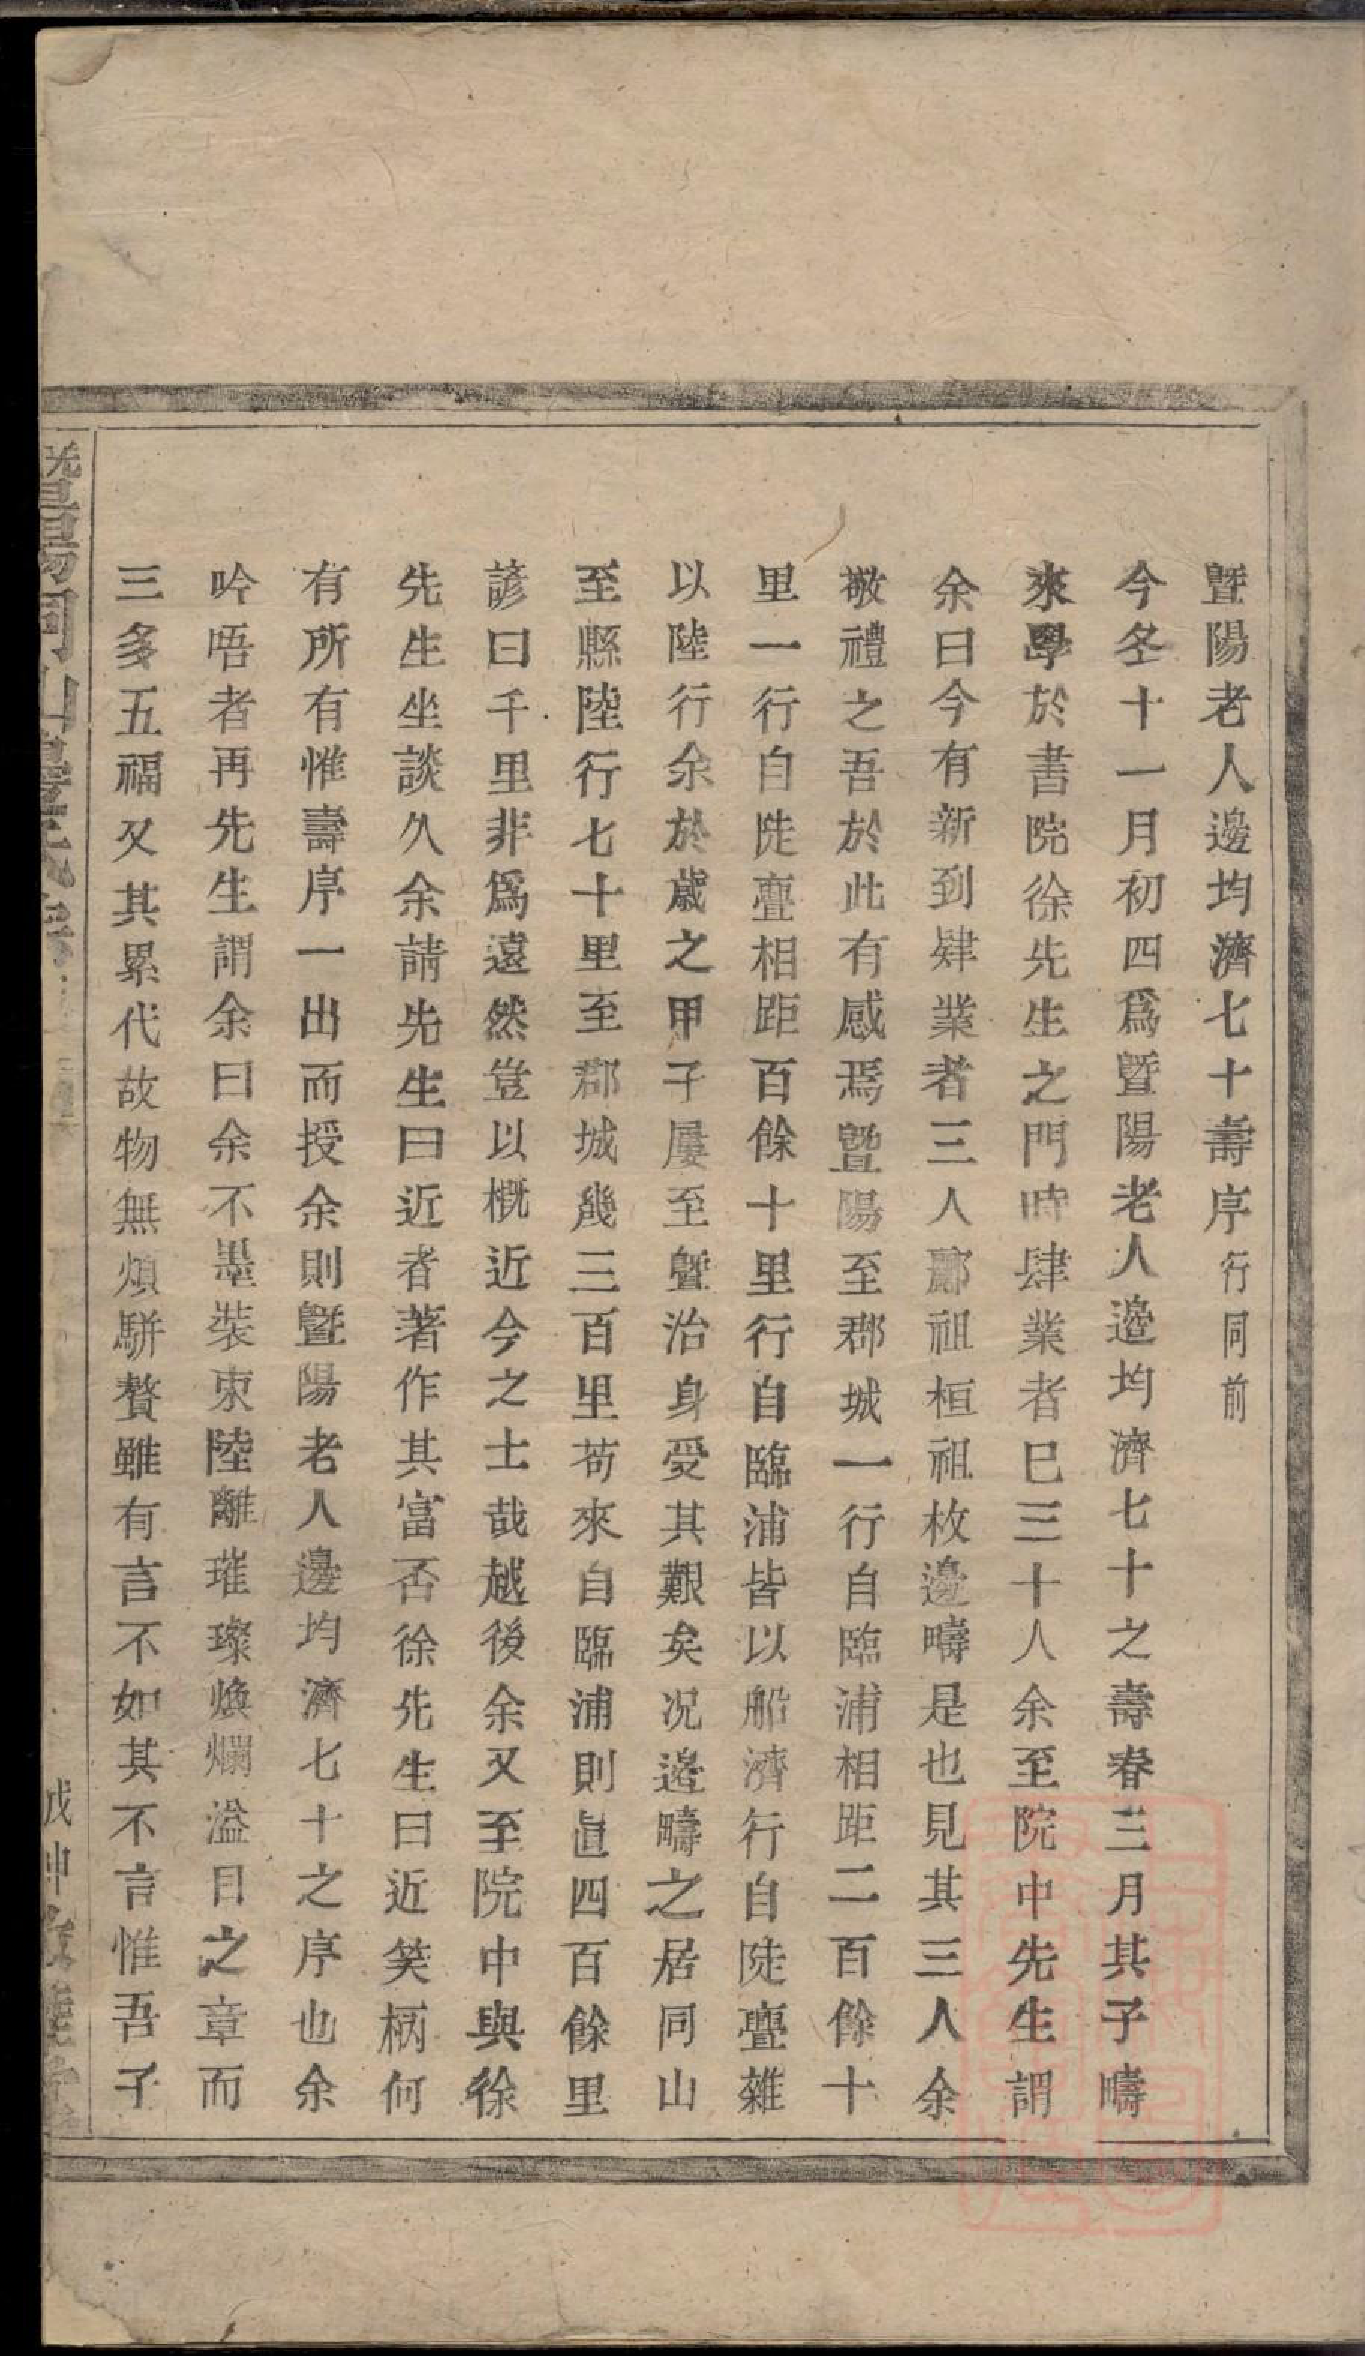 暨陽老人邊均濟七十壽序行同前
今冬十一月初四爲暨陽老人邊均濟七十之壽春三月其子疇
來學於書院徐先生之門時肆業者已三十人余至院中先生謂
余曰今有新到肄業者三人酈祖桓祖枚邊疇是也見其三人余
敬禮之吾於此有感焉暨陽至郡城一行自臨浦相距二百餘十
里一行自陡亹相距百餘十里行自臨浦皆以船濟行自陡亹雜
以陸行余於歲之甲子屢至暨治身受其艱矣况邊疇之居同山
至縣陸行七十里至郡城幾三百里苟來自臨浦則直四百餘里
諺曰千里非爲遠然豈以概近今之士哉越後余又至院中與徐
先生坐談久余請先生曰近者著作其富否徐先生曰近笑柄何
有所有惟壽序一出而授余則暨陽老人邊均濟七十之序也余
吟唔者再先生謂余曰余不墨裝束陸離璀璨煥爛溢目之章而
三多五福又其累代故物無煩駢贅雖有言不如其不言惟吾子
暨陽同山邊氏